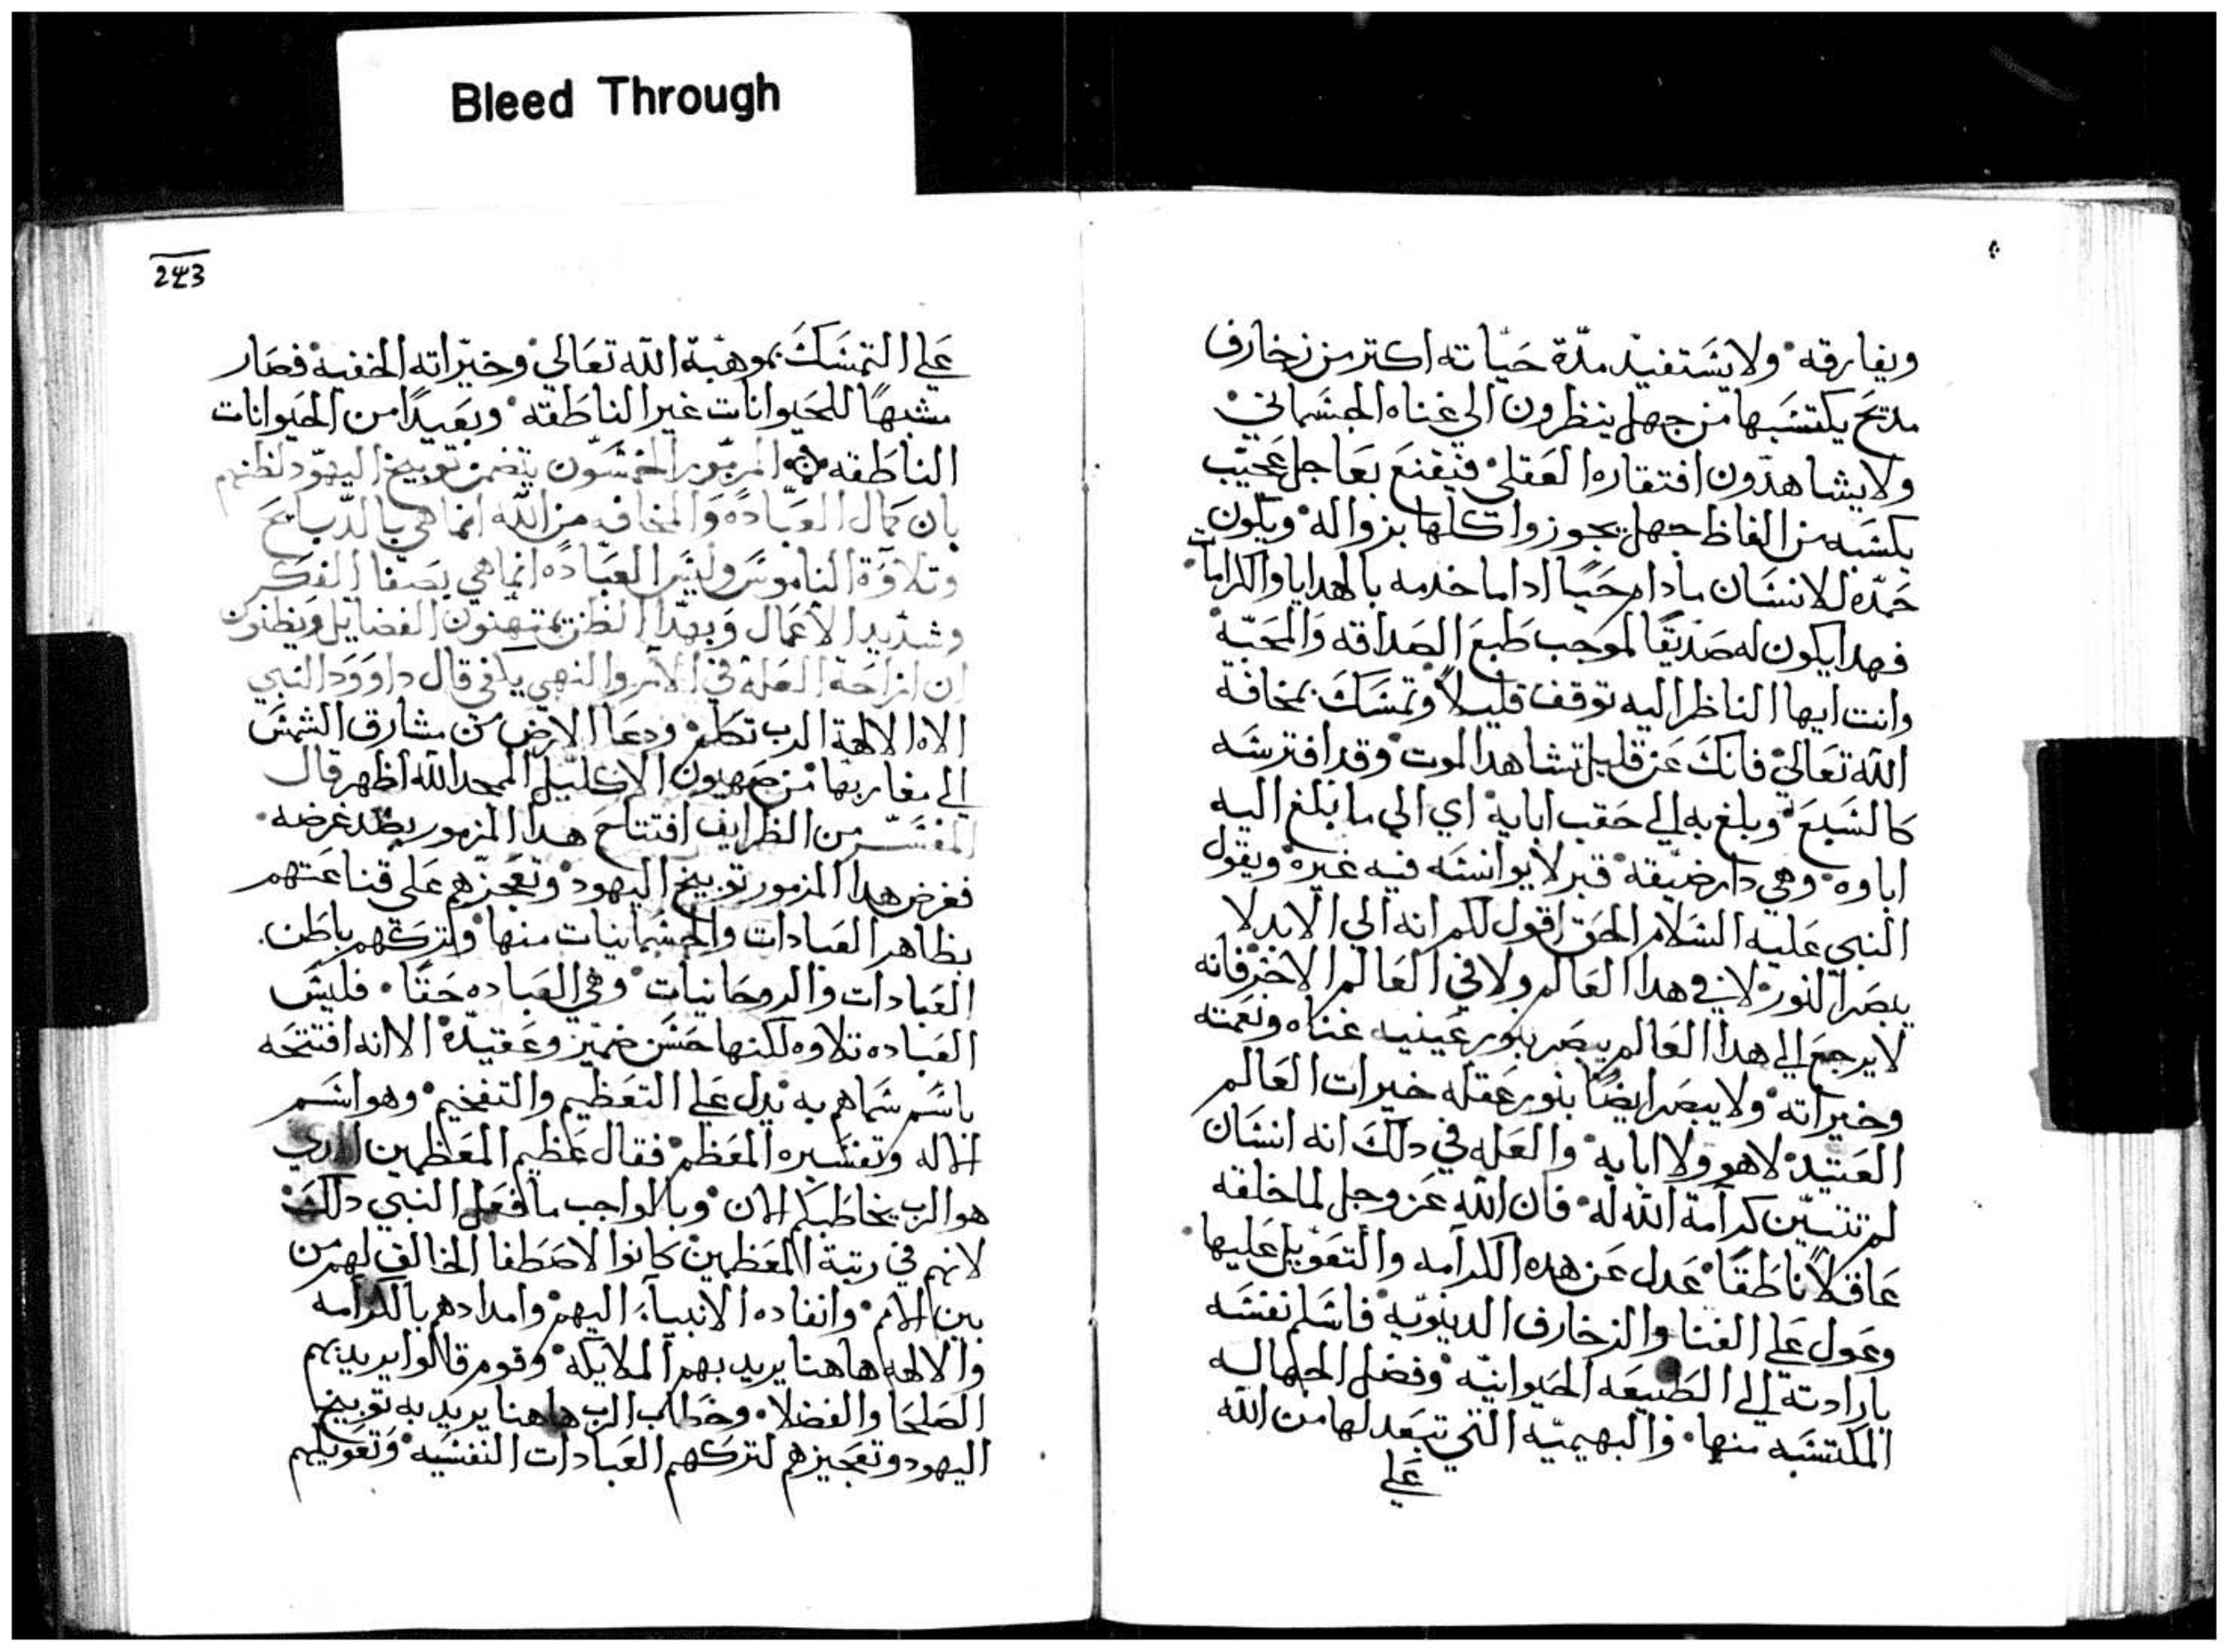 Bleed Through
ويفارقه ولا يستفيد مدة حياته اكتر من زخارف
مديح يكتسبها من جهل ينظرون الي غناه الجسماني
ولا يشاهدون افتقاره العقلي فيقنع بعاجل عجيب
يكسبه من الفاظ جهل يجوز واكلها بزواله ويكون
حمده للانسان مادام حيا اداما خدمه بالهدايا والكرامات
فهدا يكون له صديقا لموجب طبع الصداقه والمحبه
وانت ايها الناظر اليه توقف قليلا وتمسك بمخافة
الله تعالي فانك عن قليل تشاهد الموت وقد افترسه
كالسبع وبلغ به الي حقب ابايه اي الي ما بلغ اليه
اباوه وهي دار ضيقة قبر لا يوانسه فيه غيره ويقول
النبي عليه السلام الحق اقول لكم انه الي الابد لا
يبصر النور لا في هدا العالم ولا في العالم الاخر فانه
لا يرجع الي هدا العالم يبصر بنور عينيه غناه ونعمته
وخيراته ولا يبصر ايضا بنور عقله خيرات العالم
العتيد لا هو ولا ابايه والعله في دلك انه انسان
لم تتبين كرامة الله له فان الله عز وجل لما خلقه
عاقلا ناطقا عدل عن هده الكرامه والتعويل عليها
وعول علي الغنا والزخارف الدنيويه فاسلم نفسه
بارادته الي الطبيعه الحيوانيه وفضل الجهاله
المكتسبه منها والبهيميه التي تبعد لها من الله
علي
243
علي التمسك بموهبة الله تعالي وخيراته الخفيه فصار
مشبها للحيوانات غير الناطقه وبعيدا من الحيوانات
الناطقه المزمور الخمسون يتضمن توبيخ اليهود لظنهم
بان كمال العباده والمخافه من الله انما هي بالدبايح
وتلاوة الناموس وليس العباده انما هي بصفا الفكر
وشديد الاعمال وبهدا الظن يمتهنون الفضايل ويظنون
ان ازاحة العله في الامر والنهي يكفي قال داوود النبي
الاه الالهة الرب تكلم ودعا الارض من مشارق الشمس
الي مغاربها من صهيون الاكليل الممجد الله اظهر قال
المفسر من الظرايف افتتاح هدا المزمور بضد غرضه
فغرض هدا المزمور توبيخ اليهود وتعجيزهم علي قناعتهم
بظاهر العبادات والجسمانيات منها ولتركهم باطن
العبادات والروحانيات وهي العباده حقا فليس
العباده تلاوه لكنها حسن ضمير وعقيدة الا انه افتتحه
باسم سماهم به يدل علي التعظيم والتفخيم وهو اسم
الاله وتفسيره المعظم فقال عظيم المعظمين الدي
هو الرب يخاطبكم الان وبالواجب ما فعل النبي دلك
لانهم في رتبة المعظمين كانوا لاصطفا الخالق لهم من
بين الامم وانفاده الانبياء اليهم وامدادهم بالكرامه
والالهه هاهنا يريد بهم الملايكه وقوم قالوا يريد بهم
الصلحا والفضلا وخطاب الرب هاهنا يريد به توبيخ
اليهود وتعجيزهم لتركهم العبادات النفسيه وتعويلهم